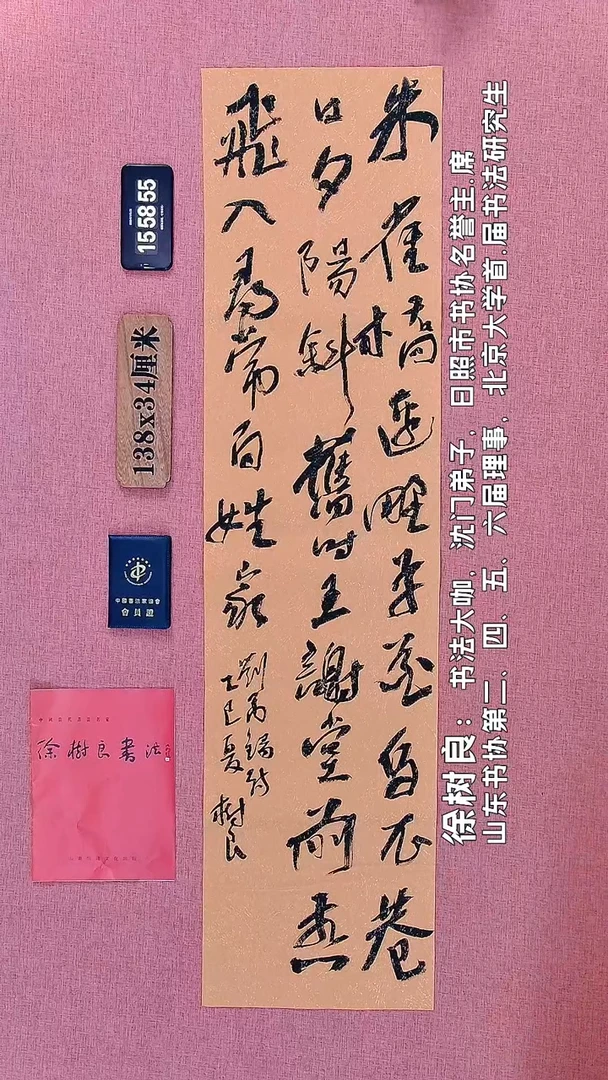 朱雀橋邊野草花烏衣巷
口夕陽斜舊时王謝堂前燕
飛入尋常百姓家
劉禹錫詩
乙巳夏
樹良
徐树良：书法大咖，沈门弟子，日照市书协名誉主.席
山东书协第二、四、五、六届理事，北京大学首.届书法研究生
15 58 55
138x34厘米
中國書法家協會
會員證
徐樹良書法